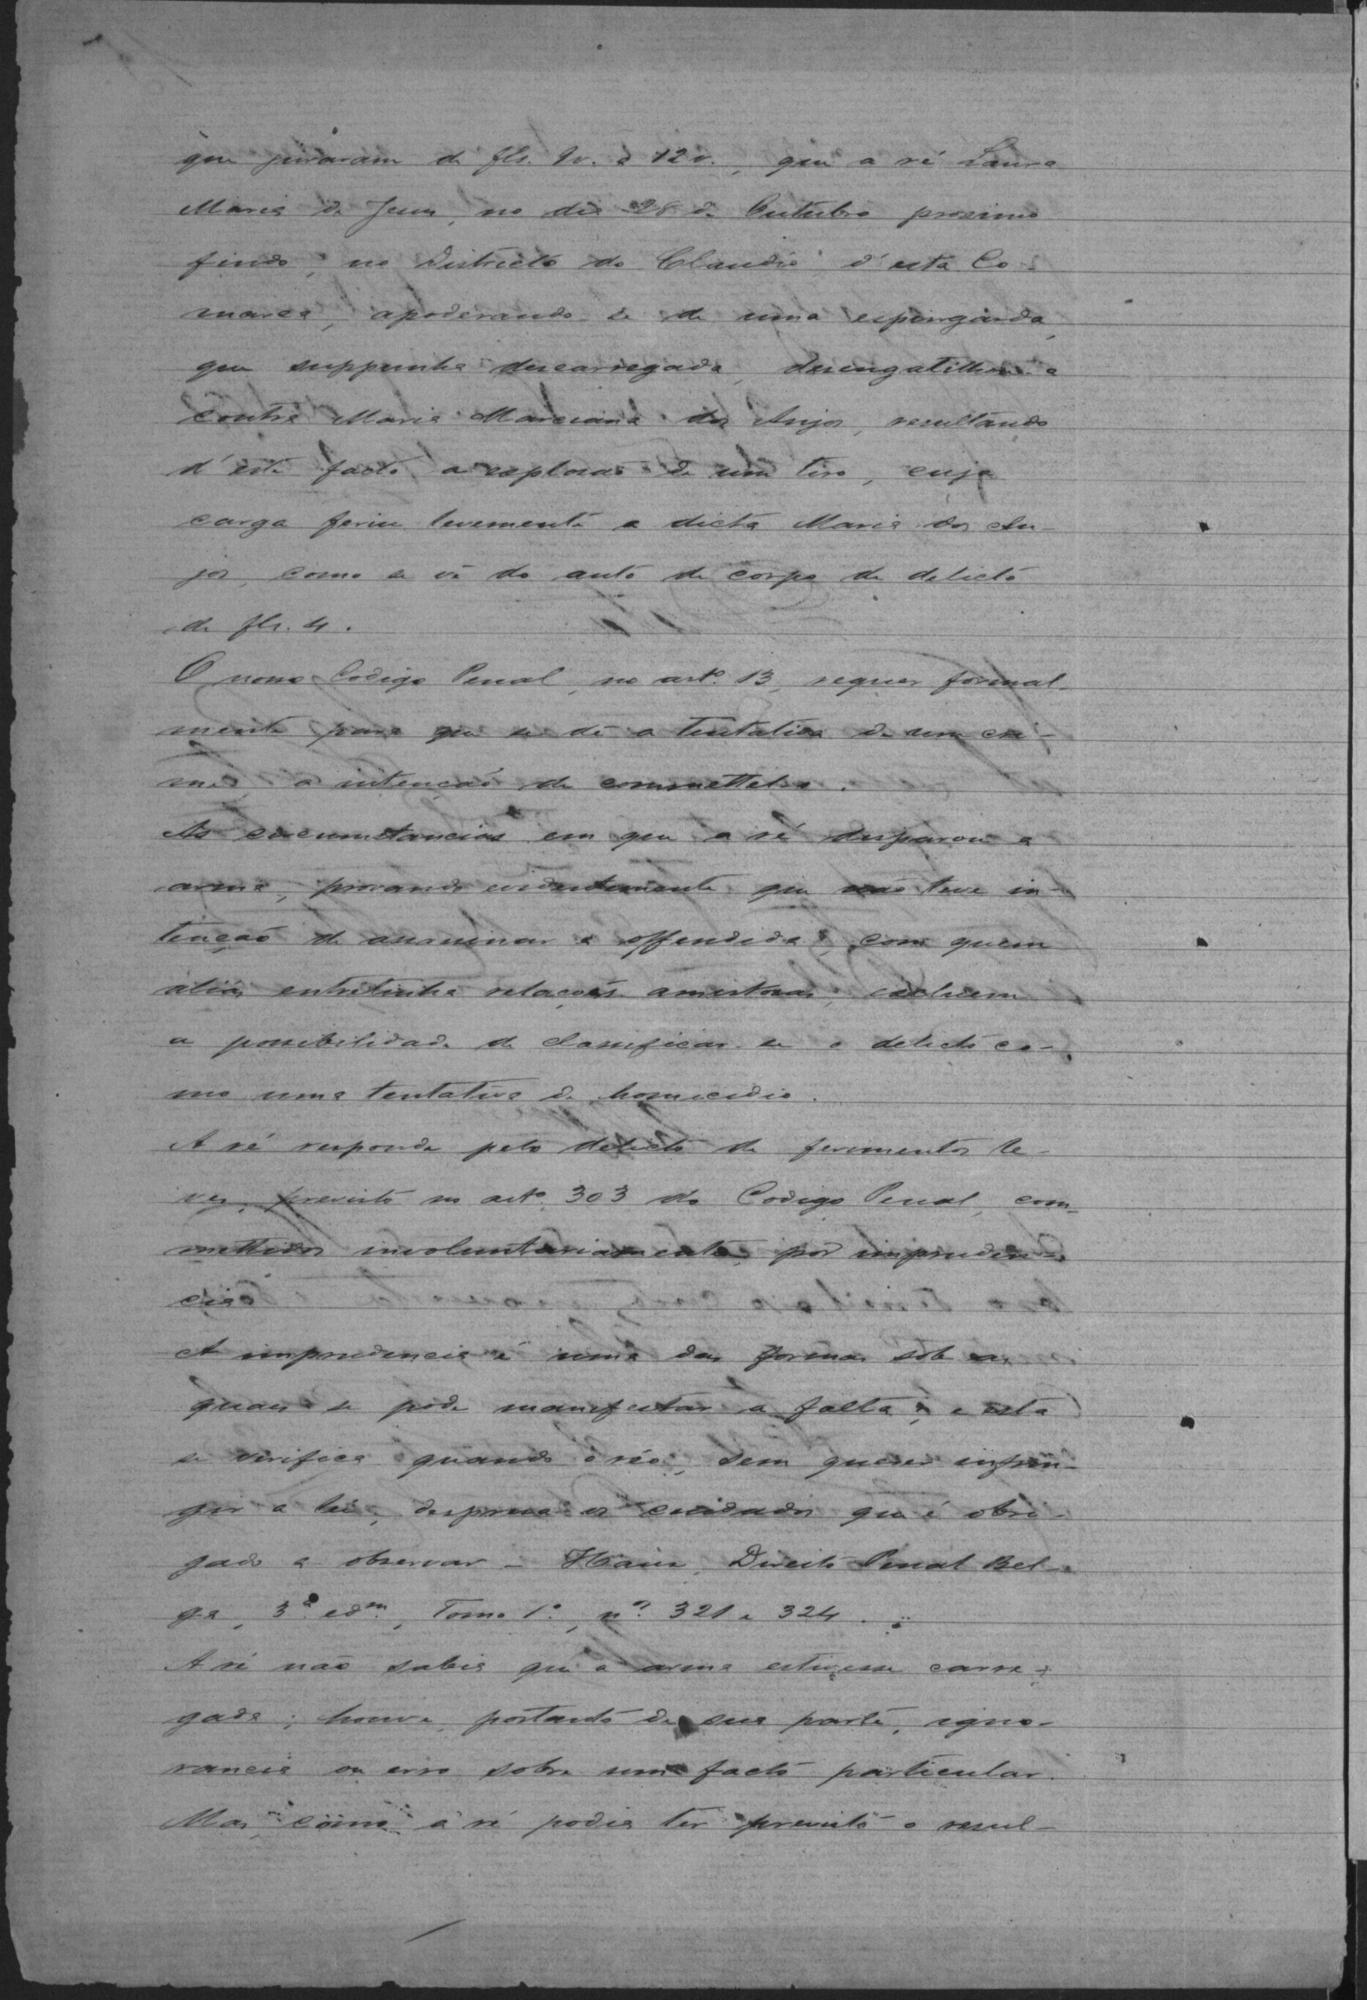 que juraram de fls. 9v. a 12v., que a ré Laura
Maria de Jesus, no dia 28 de Outubro proximo
findo, no Districto do Claudio d'esta Co-
marca, apoderando-se de uma espingarda,
que suppunha descarregada, desengatilhou-a
contra Maria Marciana dos Anjos, resultando
d'este facto a explosão de um tiro, cuja
carga feriu levemente a dicta Maria dos An-
jos, como se vê do auto de corpo de delicto
de fls. 4.
O novo Codigo Penal, no art.º 13, requer formal-
mente para que se dê a tentativa de um cri-
me, a intenção de commettel-o.
As circumstancias em que a ré desparou a
arma, provando evidentemente que não teve in-
tenção de assassinar a offendida, com quem
aliás entretinha relações amistosas, excluem
a possibilidade de classificar-se o delicto co-
mo uma tentativa de homicidio.
A ré responde pelo delicto de ferimentos le-
ves, previsto no art.º 303 do Codigo Penal, com-
mettidos involuntariamente, por impruden-
cia.
A imprudencia é uma das formas sob as
quaes se pode manifestar a falta; e esta
se verifica quando o réo, sem querer infrin-
gir a lei, despresa os cuidados que é obri-
gado a observar - Haus, Direito Penal Bel-
ga, 3ª edm., Tomo 1º, nº 321 a 324.
A ré não sabia que a arma estivesse carre-
gada; houve, portanto de sua parte, igno-
rancia ou erro sobre um facto particular.
Mas, como a ré podia ter previsto o resul-